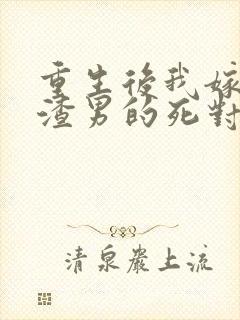 重生後我嫁
渣男的死對
清泉巖上流